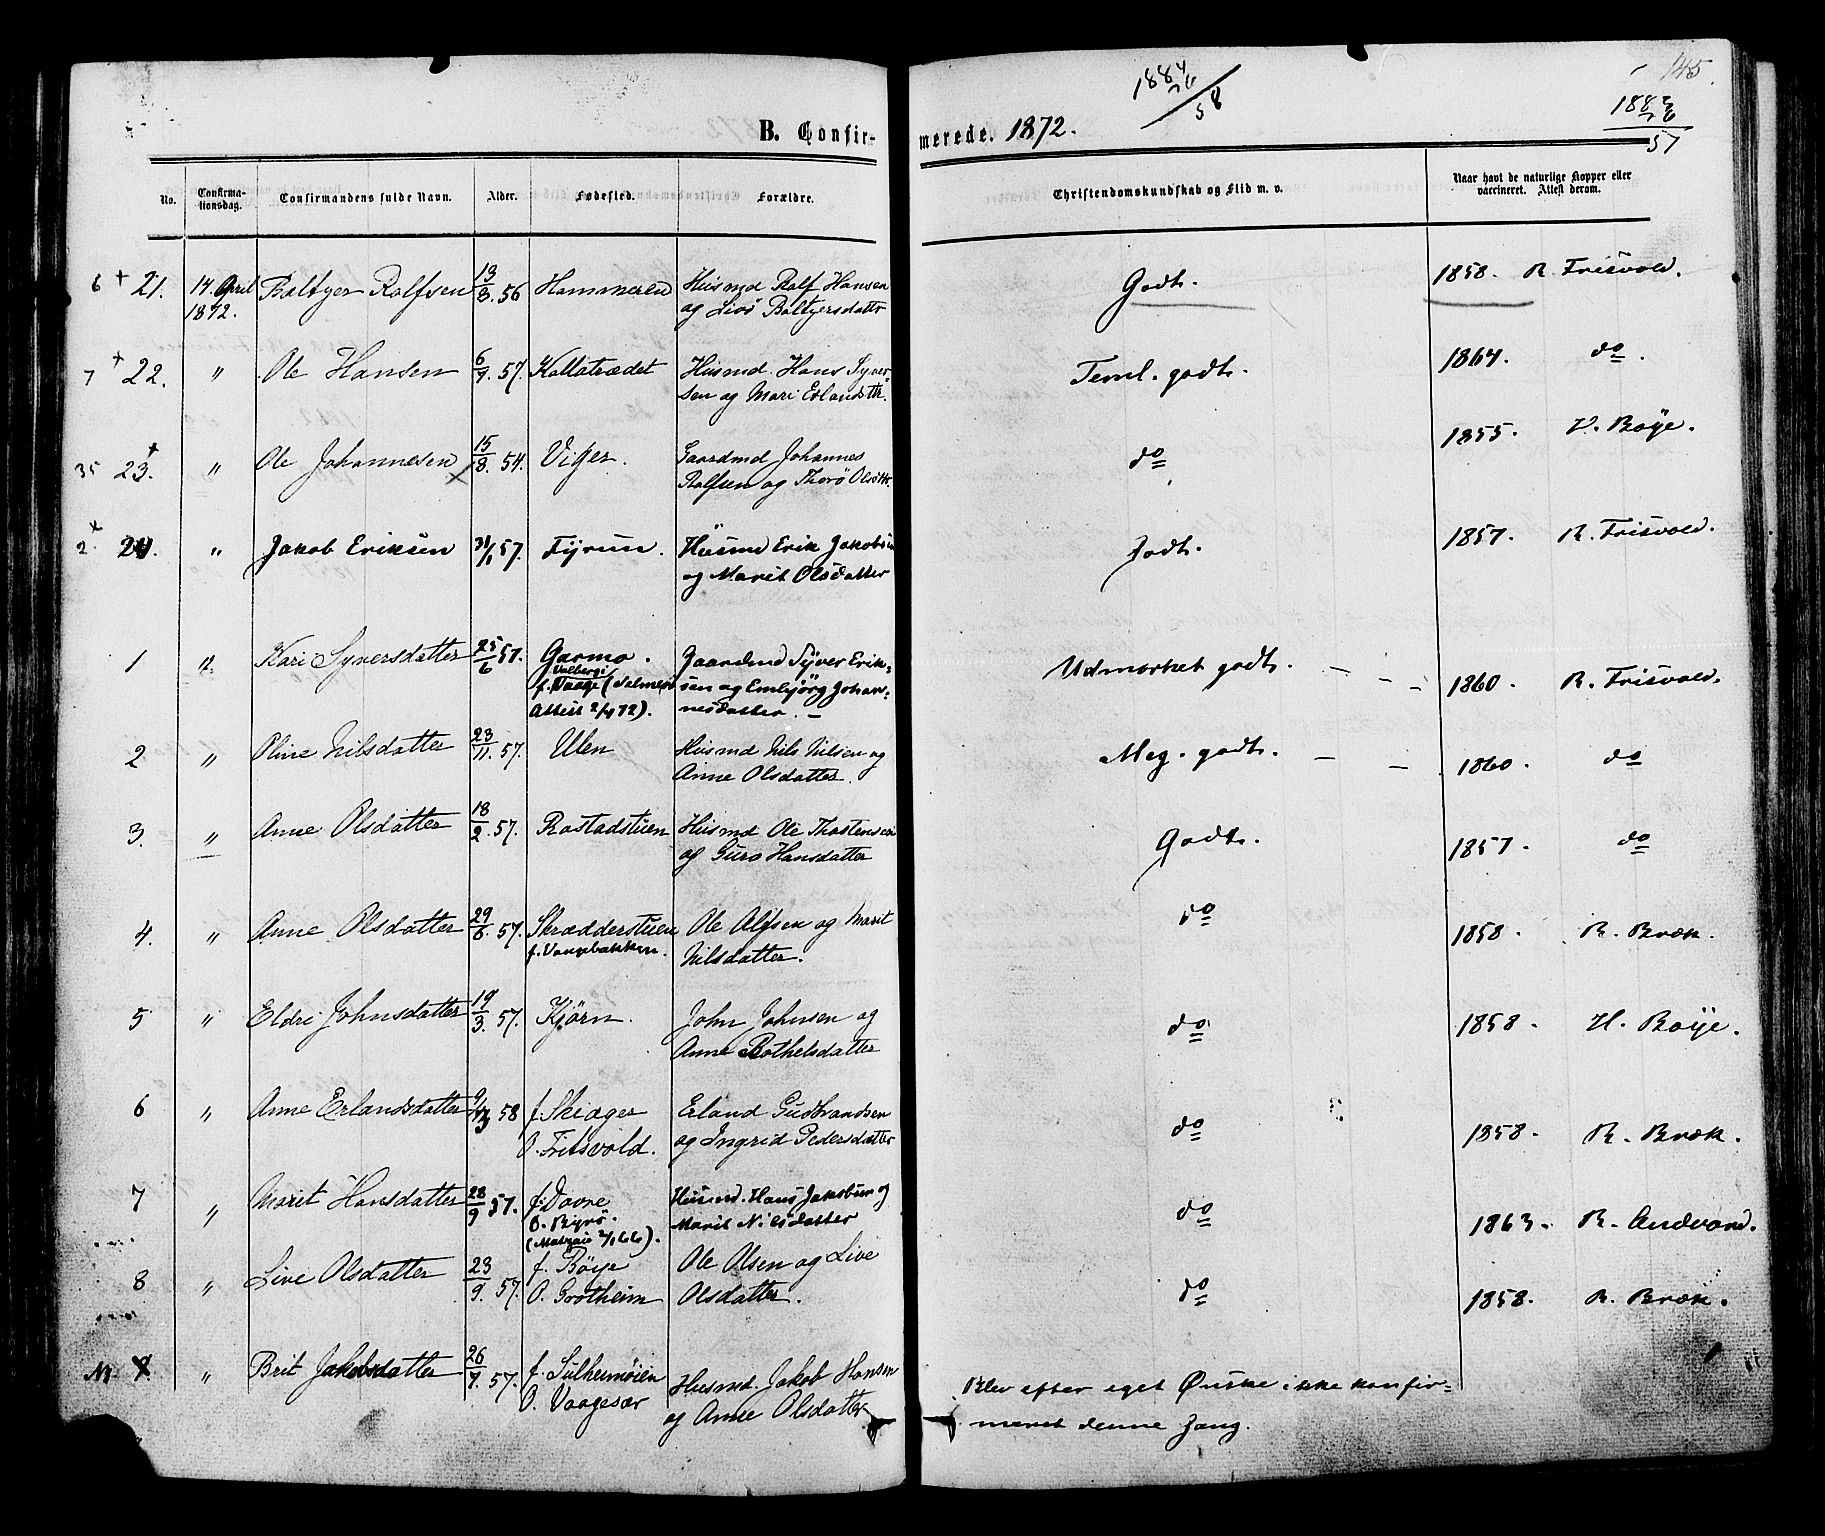 145.
1884
76
58
1883
76
57
B. Confir- merede. 1872.
No.
Confirma-
tionsdag.
Confirmandens fulde Navn.
Alder.
Fødested.
Forældre.
Christendomskundskab og Flid m. v.
Naar havt de naturlige Kopper eller
vaccineret. Attest derom.
6 + 21. 14. April Baltzer Rolfsen 13/3. 56 Hammeren Husmd Rolf Hansen Godt. 1858. R. Frisvold.
1872. og Livø Baltzersdattr
7 + 22. " Ole Hansen 6/7. 57. Kollstrædet Husmd. Hans Syver- Teml. godt. 1864. do.
sen og Mari Erlandsttr.
35 23. + " Ole Johannesen 15/8. 54. Viger. Gaardmd Johannes do 1855. H. Bøye.
Rolfsen og Thorø Olsdttr.
2 + 24. " Jakob Eriksen 31/1 57. Fyrun. Husmd Erik Jakobsen Godt. 1857. R. Frisvold.
og Marit Olsdatter
1 " Kari Syversdatter 25/6 57. Garmo. Gaardmd Syver Erik- Udmærket godt. — - - - 1860. R. Frisvold.
f. Vaage sen og Embjørg Johan-
Attest 2/4 72). nesdatter. —
2 " Oline Nilsdatter 23/11. 57. Ulen Husmd Nils Nilsen og Meg. godt. — — 1860. do
Anne Olsdatter.
3. " Anne Olsdatter 18/2. 57. Rostadstuen Husmd Ole Thostensen Godt. 1857. do
og Guro Hansdatter
4. " Anne Olsdatter 29/6. 57. Skrædderstuen Ole Alfsen og Marit do 1858. R. Bræk.
f. Vangbakken. Nilsdatter.
5 " Eldri Johnsdatter 19/3. 57. Kjørn. John Johnsen og do 1858. H. Bøye.
Anne Bothelsdatter
6 " Anne Erlandsdatter 58 f. Skiager Erland Gudbrandsen do 1858. R. Bræk.
O. Fritsvold. og Ingrid Pedersdatter
7 " Marit Hansdatter 28/9 57. f. Dovre Husmd. Hans Jakobsen og do 1863. R. Andvord.
Marit Nilsdatter
8 " Live Olsdatter 23/9. 57. f. Bøye Ole Olsen og Live do 1858. R. Bræk.
O. Grotheim Olsdatter.
" Brit Jakobsdatter 26/7. 57. f. Sulhermøien Husmd. Jakob Hansen Blev efter eget Ønske ikke konfir-
O. Vaagesær og Anne Olsdatter meret denne Gang.